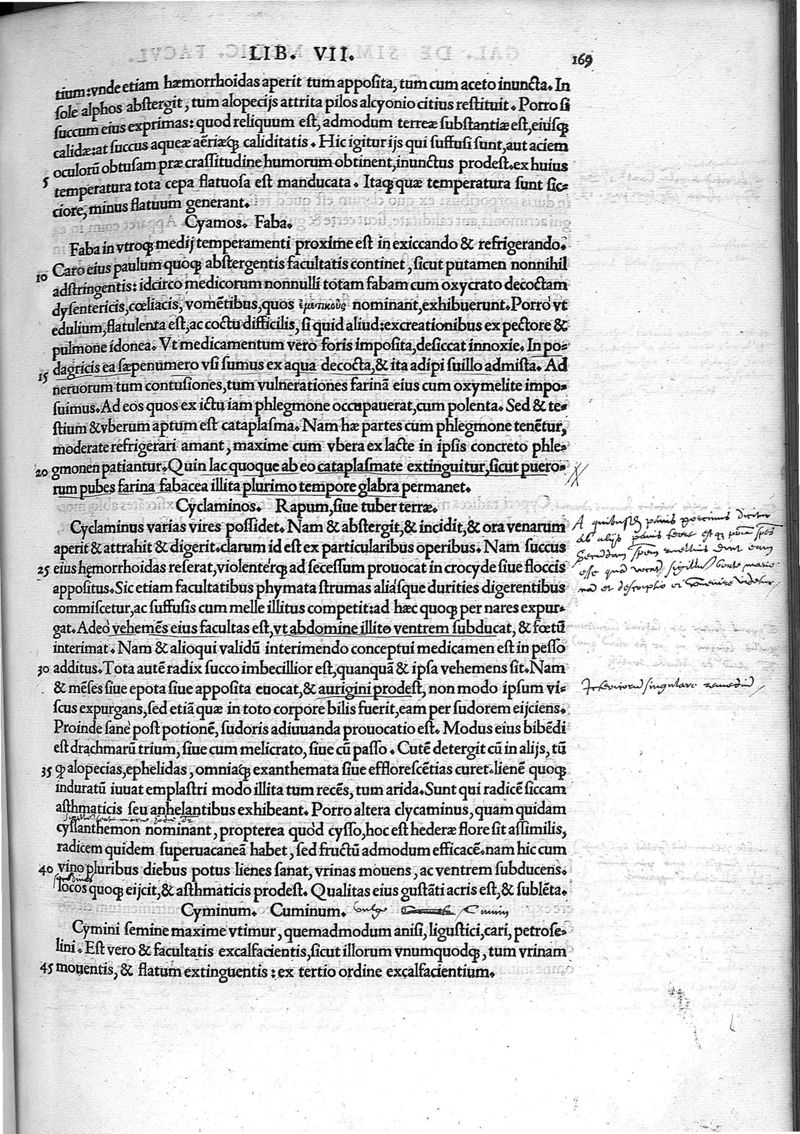 LIB. VII.
169
tium: vnde etiam hæmorrhoidas aperit tum apposita, tum cum aceto inuncta. In
sole alphos abstergit, tum alopecijs attrita pilos alcyonio citius restituit. Porro si
succum eius exprimas: quod reliquum est, admodum terreæ substantiæ est, eiusq;
calidæ: at succus aqueæ aëriæq; caliditatis. Hic igitur ijs qui suffusi sunt, aut aciem
oculorũ obtusam præ crassitudine humorum obtinent, inunctus prodest. ex huius
5 temperatura tota cepa flatuosa est manducata. Itaq; quæ temperatura sunt sic-
ciore, minus flatuum generant.
Cyamos. Faba.
Faba in vtroq; medij temperamenti proxime est in exiccando & refrigerando.
10 Caro eius paulum quoq; abstergentis facultatis continet, sicut putamen nonnihil
adstringentis: idcirco medicorum nonnulli totam fabam cum oxycrato decoctam
dysentericis, cœliacis, vomẽtibus, quos ἐμετικοὺς nominant, exhibuerunt. Porrò vt
edulium, flatulenta est, ac coctu difficilis, si quid aliud: excreationibus ex pectore &
pulmone idonea. Vt medicamentum vero foris imposita, desiccat innoxie. In po-
15 dagricis ea sæpenumero vsi sumus ex aqua decocta, & ita adipi suillo admista. Ad
neruorum tum contusiones, tum vulnerationes farinã eius cum oxymelite impo-
suimus. Ad eos quos ex ictu iam phlegmone occupauerat, cum polenta. Sed & te-
stium & vberum aptum est cataplasma. Nam hæ partes cum phlegmone tenẽtur,
moderate refrigerari amant, maxime cum vbera ex lacte in ipsis concreto phle-
20 gmonen patiantur. Quin lac quoque ab eo cataplasmate extinguitur, sicut puero-
rum pubes farina fabacea illita plurimo tempore glabra permanet.
Cyclaminos. Rapum, siue tuber terræ.
Cyclaminus varias vires possidet. Nam & abstergit, & incidit, & ora venarum
aperit & attrahit & digerit. clarum id est ex particularibus operibus. Nam succus
25 eius hęmorrhoidas reserat, violenterq; ad secessum prouocat in crocyde siue floccis
appositus. Sic etiam facultatibus phymata strumas aliasque durities digerentibus
commiscetur, ac suffusis cum melle illitus competit: ad hæc quoq; per nares expur-
gat. Adeò vehemẽs eius facultas est, vt abdomine illito ventrem subducat, & fœtũ
interimat. Nam & alioqui validũ interimendo conceptui medicamen est in pesso
30 additus. Tota autẽ radix succo imbecillior est, quanquã & ipsa vehemens sit. Nam
& mẽses siue epota siue apposita euocat, & aurigini prodest, non modo ipsum vi-
scus expurgans, sed etiã quæ in toto corpore bilis fuerit, eam per sudorem eijciens.
Proinde sanè post potionẽ, sudoris adiuuanda prouocatio est. Modus eius bibẽdi
est drachmarũ trium, siue cum melicrato, siue cũ passo. Cutẽ detergit cũ in alijs, tũ
35 q; alopecias, ephelidas, omniaq; exanthemata siue efflorescẽtias curet. lienẽ quoq;
induratũ iuuat emplastri modo illita tum recẽs, tum arida. Sunt qui radicẽ siccam
asthmaticis seu anhelantibus exhibeant. Porro altera clycaminus, quam quidam
cyssanthemon nominant, propterea quòd cysso, hoc est hederæ flore sit assimilis,
radicem quidem superuacaneã habet, sed fructũ admodum efficacẽ. nam hic cum
40 vino pluribus diebus potus lienes sanat, vrinas mouens, ac ventrem subducens.
locos quoq; eijcit, & asthmaticis prodest. Qualitas eius gustãti acris est, & sublẽta.
Cyminum. Cuminum.
Cymini semine maxime vtimur, quemadmodum anisi, ligustici, cari, petrose-
lini. Est vero & facultatis excalfacientis, sicut illorum vnumquodq;, tum vrinam
45 mouentis, & flatum extinguentis: ex tertio ordine excalfacientium.